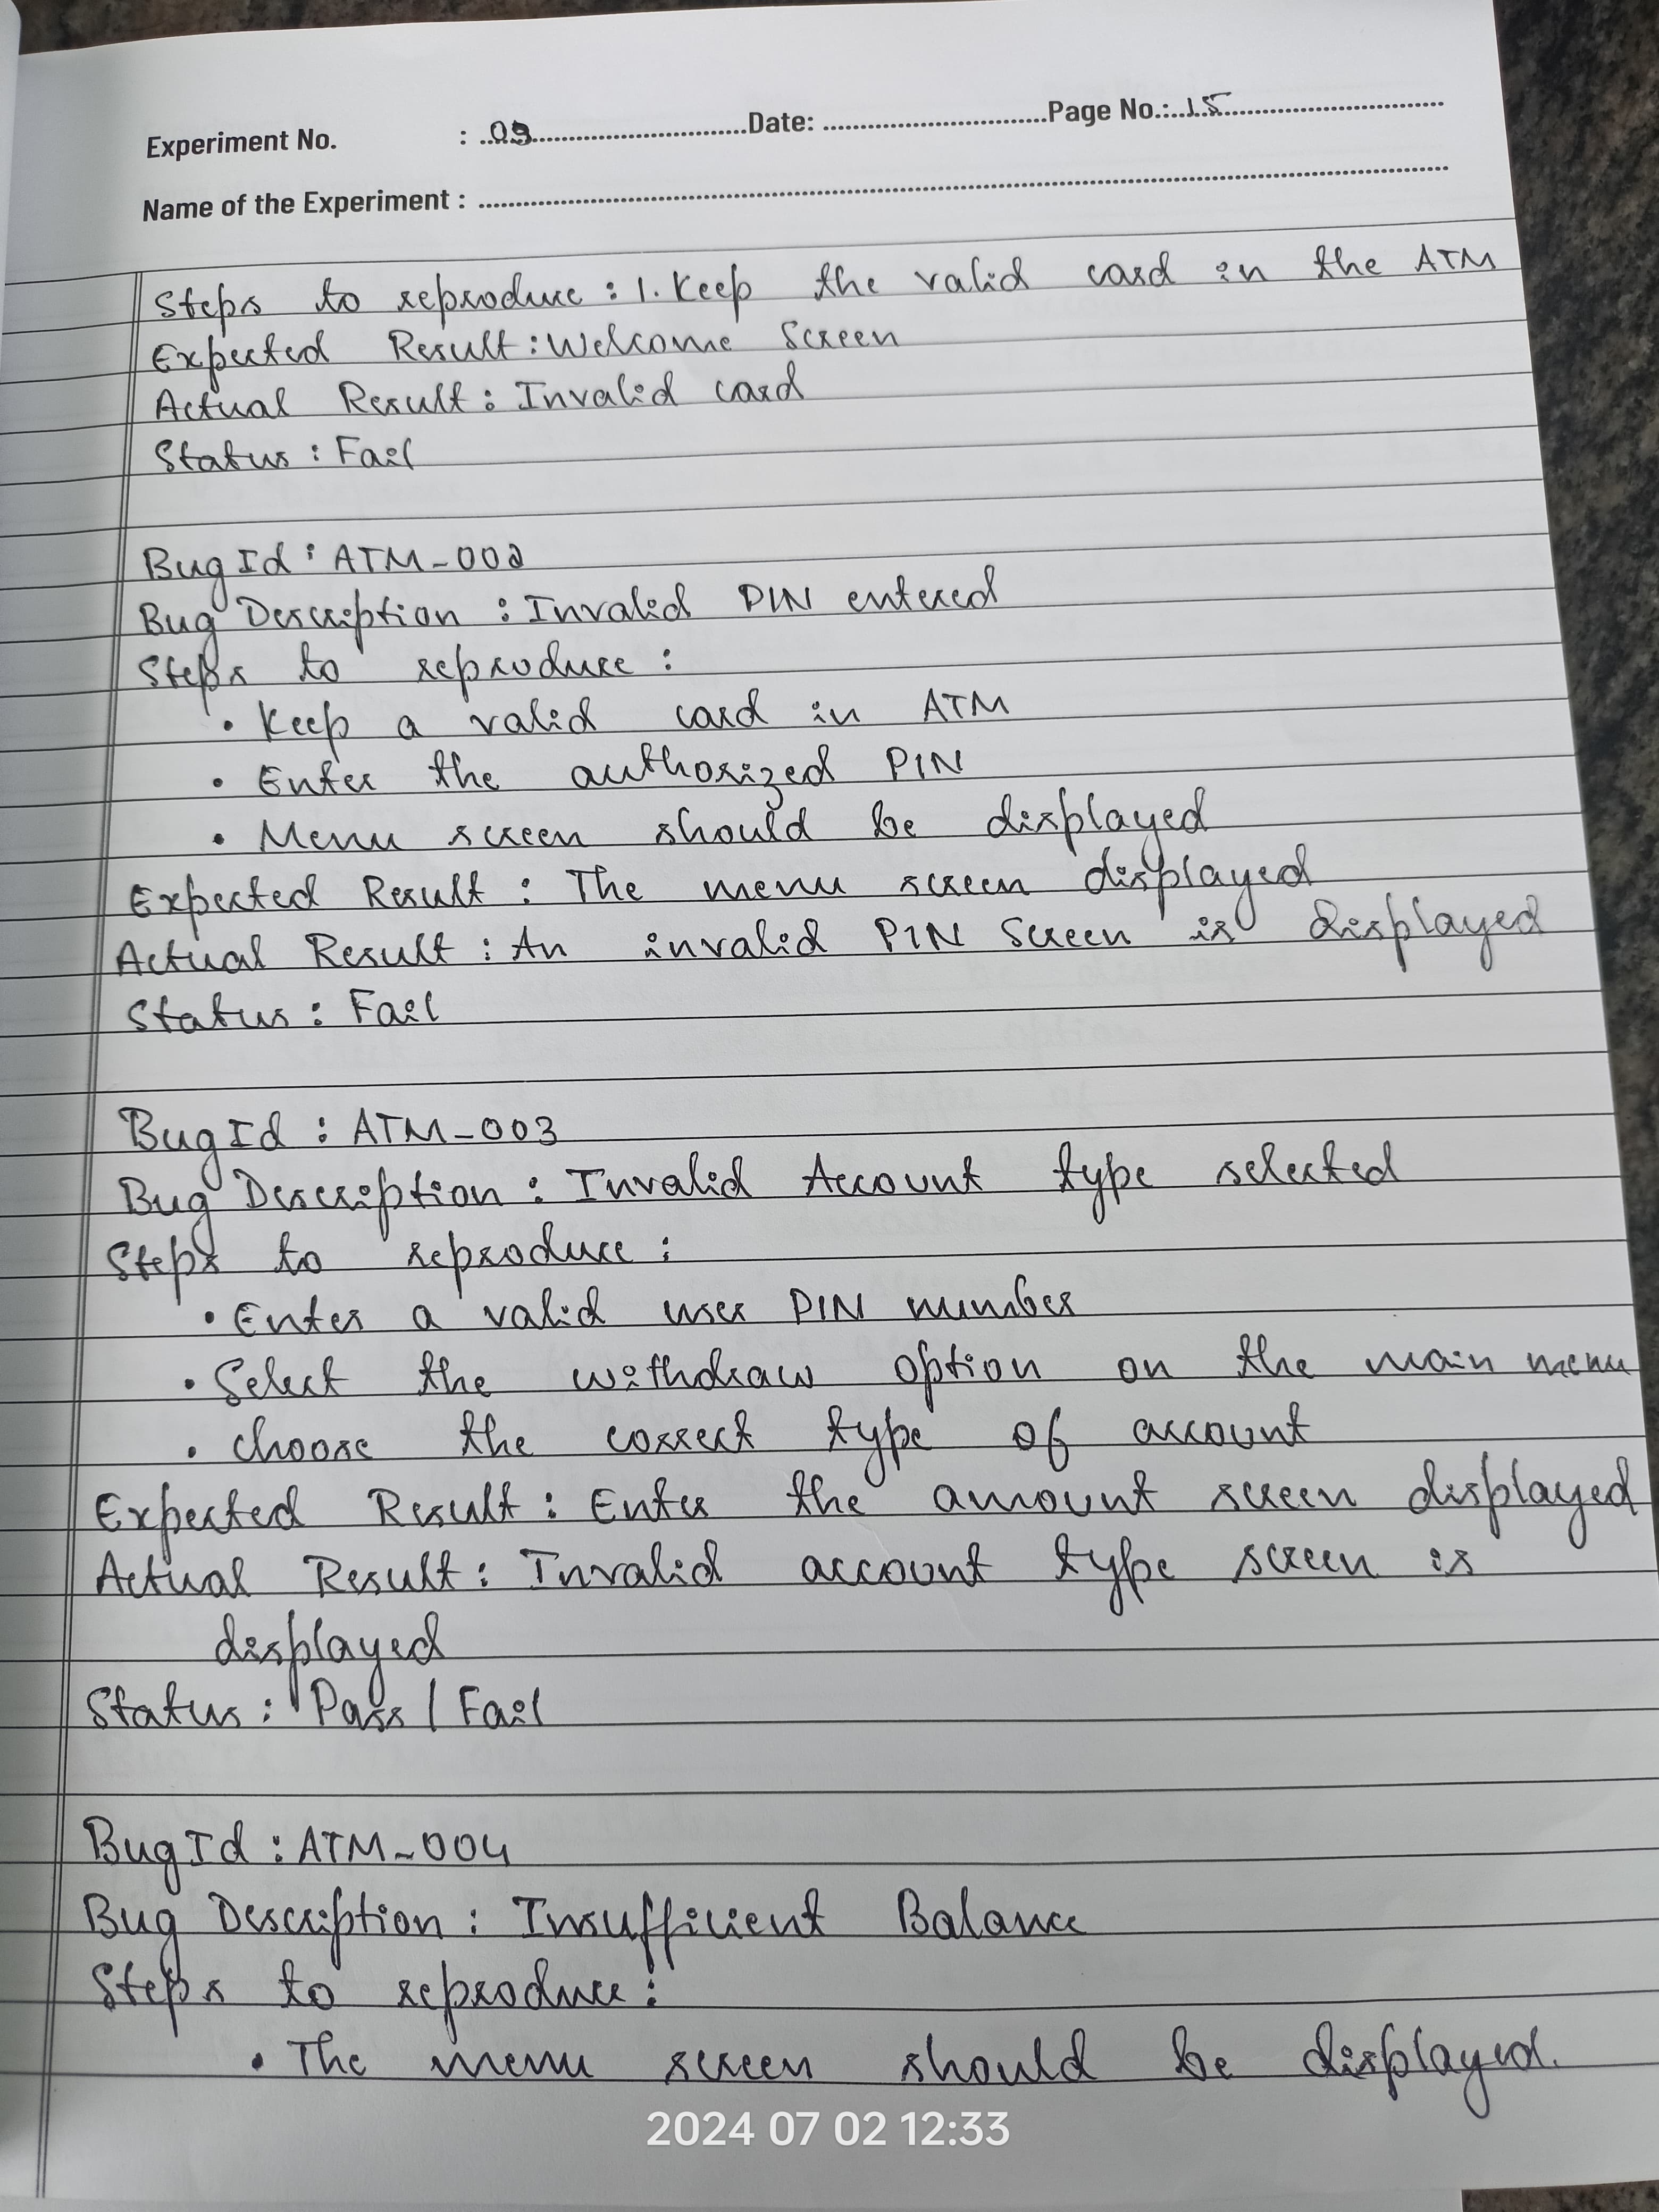 Experiment No. : 09 Date: Page No.: 15
Name of the Experiment :
Steps to reproduce : 1. Keep the valid card in the ATM
Expected Result : Welcome Screen
Actual Result : Invalid card
Status : Fail
Bug Id : ATM_002
Bug Description : Invalid PIN entered
Steps to reproduce :
• Keep a valid card in ATM
• Enter the authorized PIN
• Menu screen should be displayed
Expected Result : The menu screen displayed
Actual Result : An invalid PIN Screen is displayed
Status : Fail
Bug Id : ATM_003
Bug Description : Invalid Account type selected
Steps to reproduce :
• Enter a valid user PIN number
• Select the withdraw option on the main menu
• choose the correct type of account
Expected Result : Enter the amount screen displayed
Actual Result : Invalid account type screen is
displayed
Status : Pass / Fail
Bug Id : ATM_004
Bug Description : Insufficient Balance
Steps to reproduce :
• The menu screen should be displayed.
2024 07 02 12:33